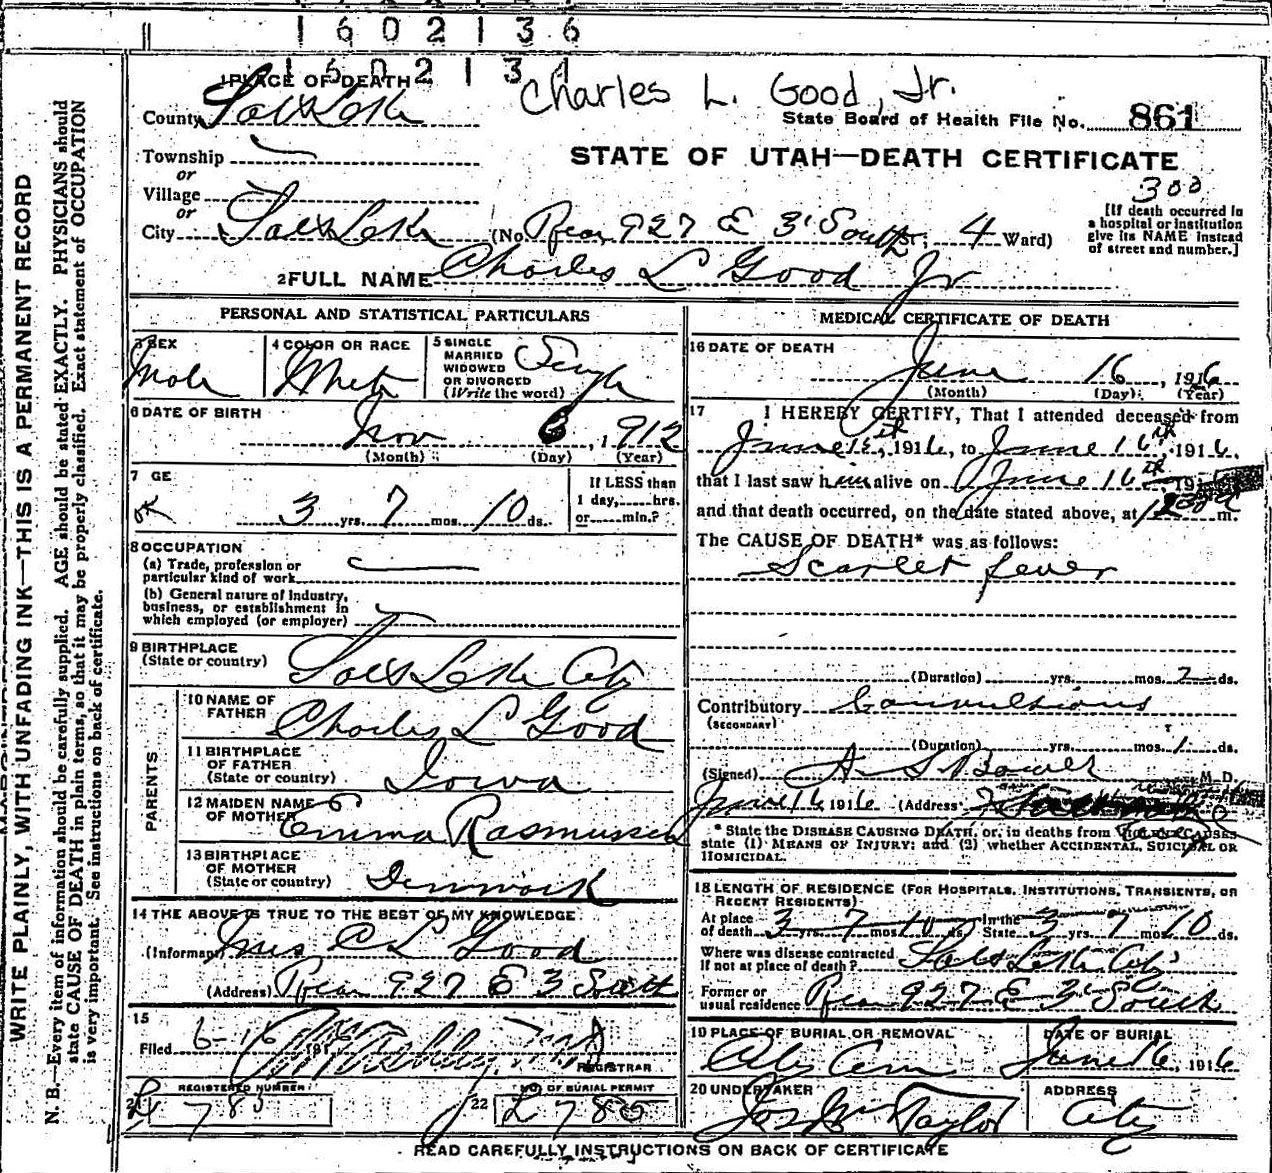 1602136
160213
Charles L. Good, Jr.
1 PLACE OF DEATH
County Salt Lake
State Board of Health File No. 861
Township
or
STATE OF UTAH—DEATH CERTIFICATE
Village
or
300
City Salt Lake (No. Rear 927 E 3 South St; 4 Ward)
[If death occurred in
a hospital or institution
give its NAME instead
of street and number.]
2 FULL NAME Charles L Good Jr
PERSONAL AND STATISTICAL PARTICULARS
3 SEX Male
4 COLOR OR RACE White
5 SINGLE
MARRIED
WIDOWED
OR DIVORCED
(Write the word) Single
6 DATE OF BIRTH
Nov 6, 1912
(Month) (Day) (Year)
7 GE
OK
3 yrs. 7 mos. 10 ds.
If LESS than
1 day, hrs.
or min.?
8 OCCUPATION
(a) Trade, profession or
particular kind of work
(b) General nature of industry,
business, or establishment in
which employed (or employer)
9 BIRTHPLACE
(State or country) Salt Lake City
PARENTS
10 NAME OF
FATHER Charles L Good
11 BIRTHPLACE
OF FATHER
(State or country) Iowa
12 MAIDEN NAME
OF MOTHER Emma Rasmussen
13 BIRTHPLACE
OF MOTHER
(State or country) Denmark
14 THE ABOVE IS TRUE TO THE BEST OF MY KNOWLEDGE
(Informant) Mrs C L Good
(Address) Rear 927 E 3 South
15
Filed 6-16 1916
REGISTRAR
REGISTERED NUMBER
NO. OF BURIAL PERMIT
22
MEDICAL CERTIFICATE OF DEATH
16 DATE OF DEATH
June 16, 1916
(Month) (Day) (Year)
17 I HEREBY CERTIFY, That I attended deceased from
June 15th, 1916, to June 16th 1916,
that I last saw him alive on June 16th, 19
and that death occurred, on the date stated above, at m.
The CAUSE OF DEATH* was as follows:
Scarlet fever
(Duration) yrs. mos. 2 ds.
Contributory Convulsions
(SECONDARY)
(Duration) yrs. mos. 1 ds.
(Signed) A S Bower M. D.
June 16 1916 (Address)
* State the DISEASE CAUSING DEATH, or, in deaths from VIOLENT CAUSES
state (1) MEANS OF INJURY; and (2) whether ACCIDENTAL, SUICIDAL OR
HOMICIDAL.
18 LENGTH OF RESIDENCE (FOR HOSPITALS, INSTITUTIONS, TRANSIENTS, OR
RECENT RESIDENTS)
At place
of death 3 yrs. 7 mos. 10 ds. In the
State 3 yrs. 7 mos. 10 ds.
Where was disease contracted
if not at place of death? Salt Lake City
Former or
usual residence Rear 927 E 3 South
19 PLACE OF BURIAL OR REMOVAL
City Cem
DATE OF BURIAL
June 16, 1916
20 UNDERTAKER
Jos Wm Taylor
ADDRESS
City
READ CAREFULLY INSTRUCTIONS ON BACK OF CERTIFICATE
WRITE PLAINLY, WITH UNFADING INK—THIS IS A PERMANENT RECORD
N. B.—Every item of information should be carefully supplied. AGE should be stated EXACTLY. PHYSICIANS should
state CAUSE OF DEATH in plain terms, so that it may be properly classified. Exact statement of OCCUPATION
is very important. See instructions on back of certificate.